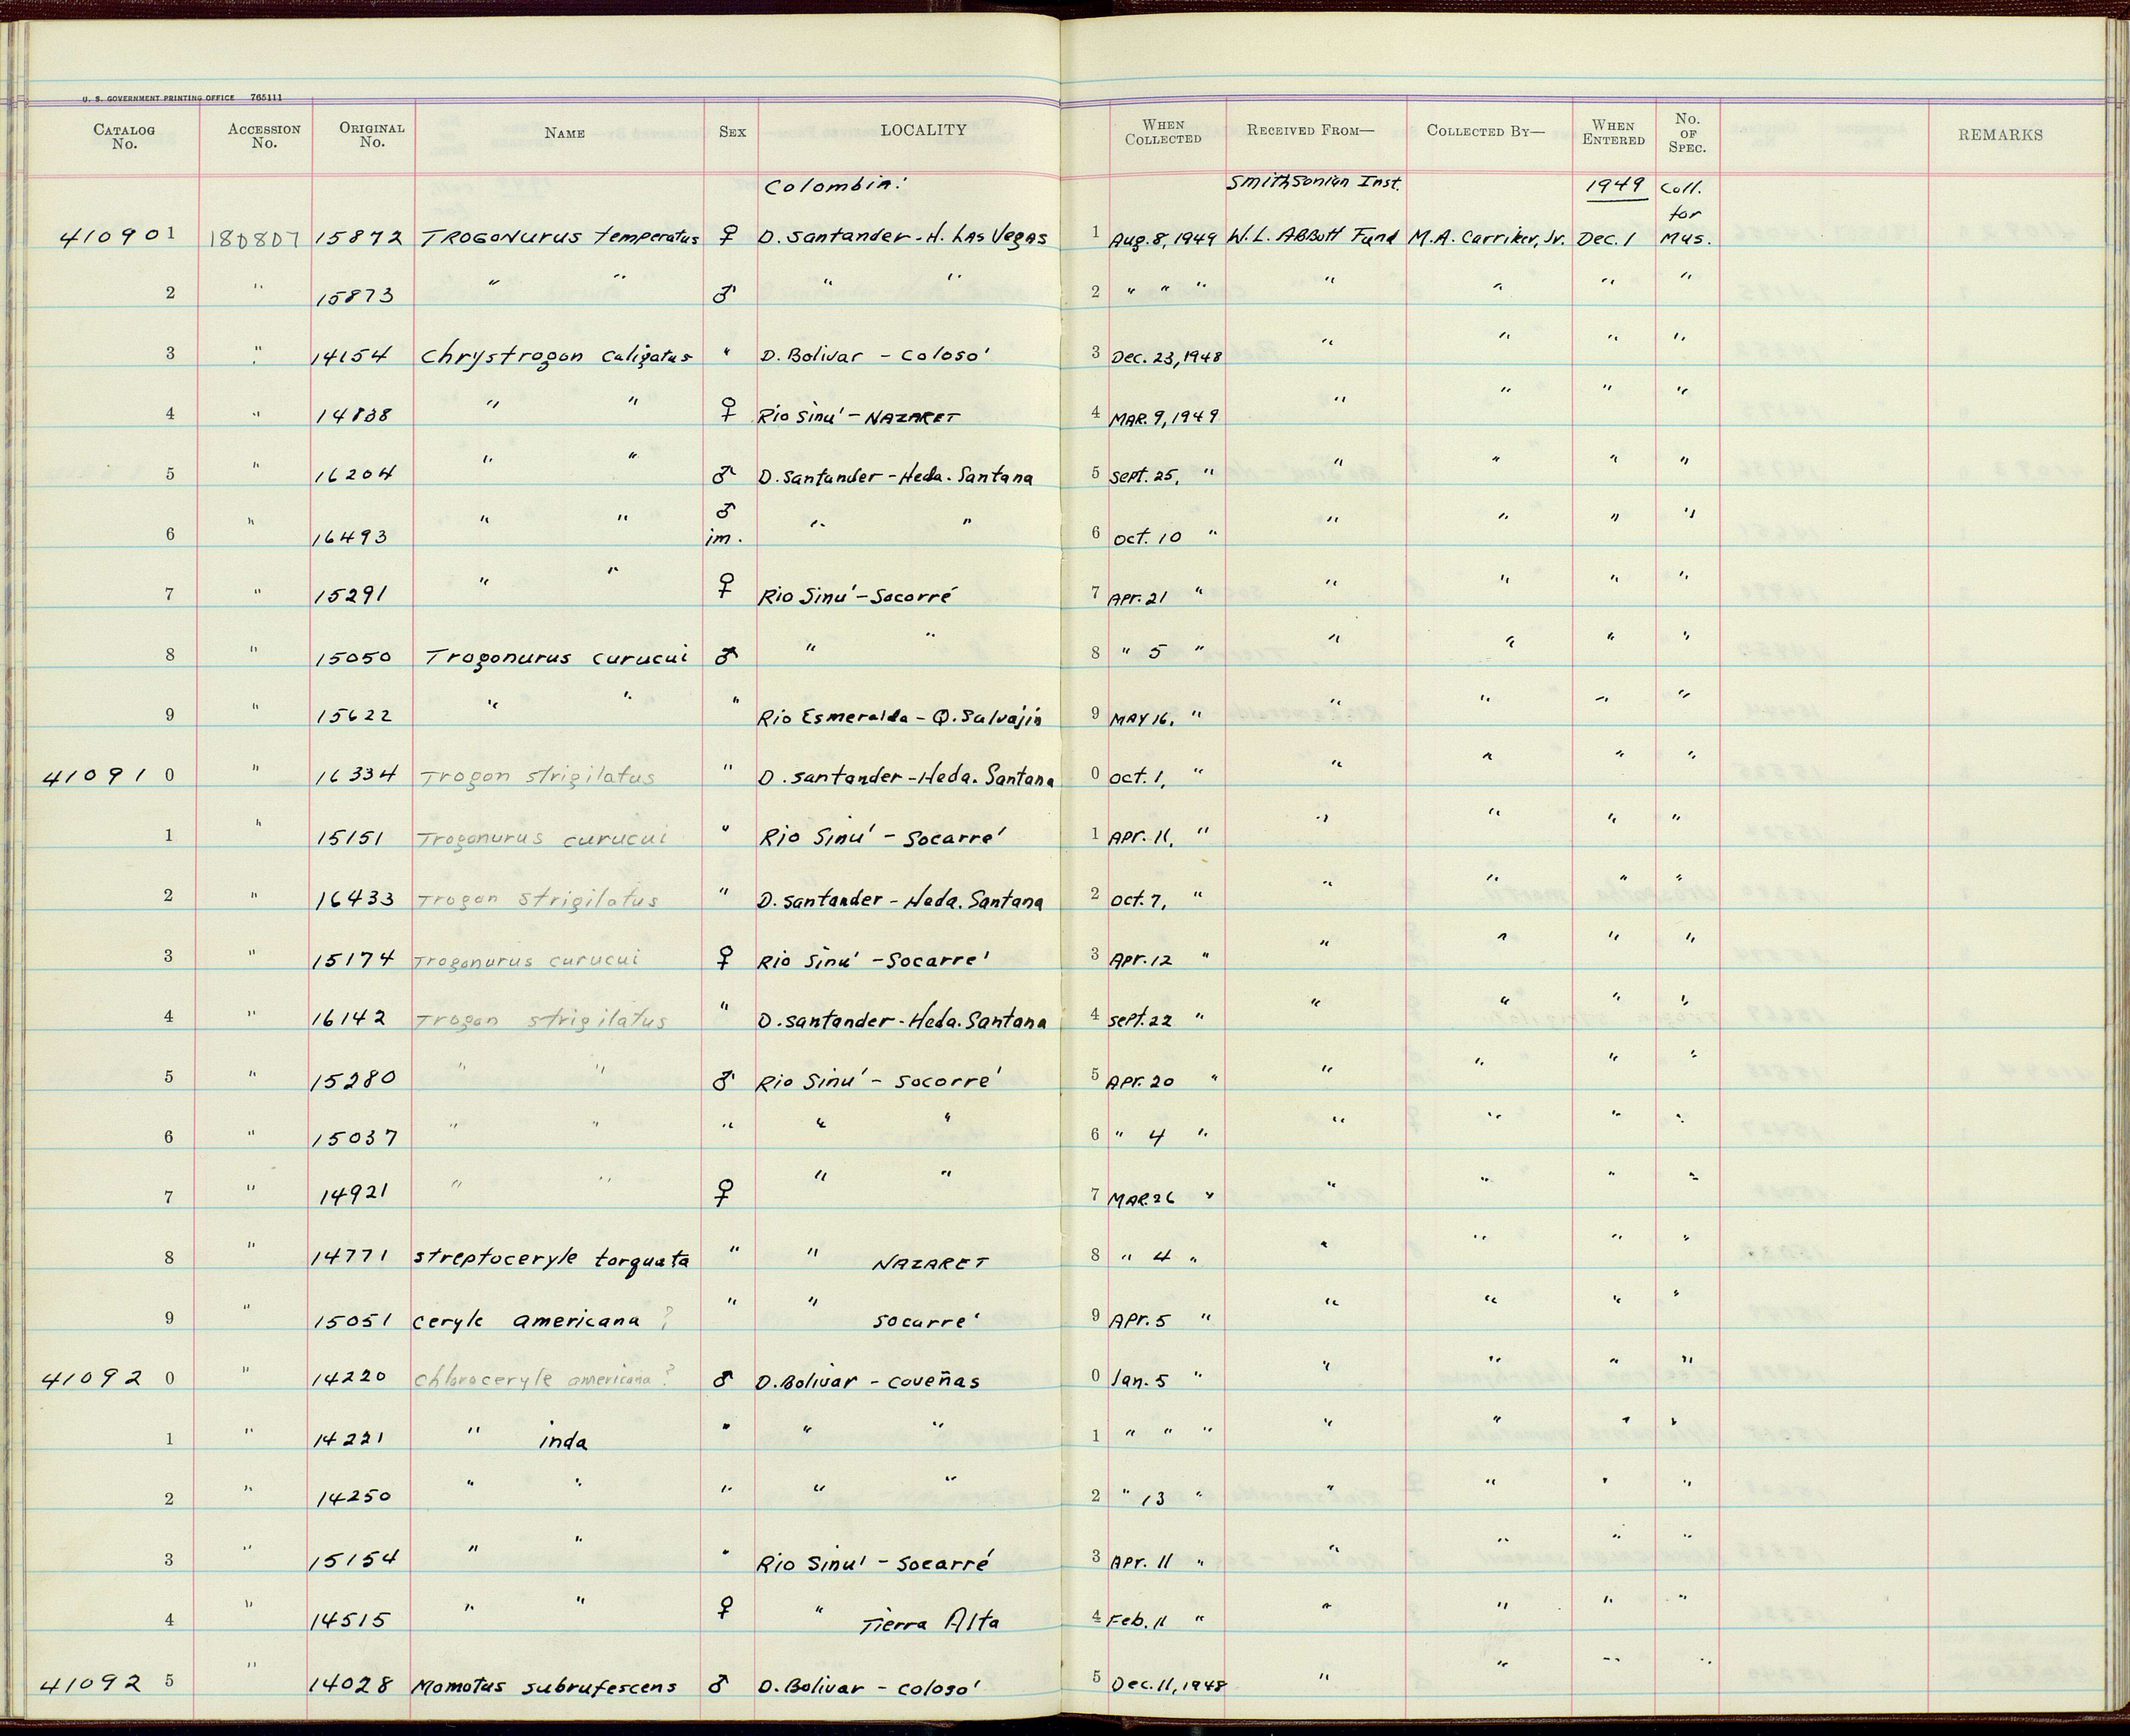 U. S. GOVERNMENT PRINTING OFFICE 765111
CATALOG No. ACCESSION No. ORIGINAL No. NAME SEX LOCALITY WHEN COLLECTED RECEIVED FROM— COLLECTED BY— WHEN ENTERED No. OF SPEC. REMARKS
Colombia: Smithsonian Inst. 1949 Coll. for
410901 180807 15872 Trogonurus temperatus ♀ D. Santander - H. Las Vegas 1 Aug. 8, 1949 W. L. Abbott Fund M. A. Carriker, Jr. Dec. 1 Mus.
2 " 15873 " " ♂ " " 2 " " " " " " "
3 " 14154 Chrystrogon caligatus " D. Bolivar - Colosó 3 Dec. 23, 1948 " " " "
4 " 14838 " " ♀ Rio Sinú - Nazaret 4 Mar. 9, 1949 " " " "
5 " 16204 " " ♂ D. Santander - Heda. Santana 5 Sept. 25, " " " " "
6 " 16493 " " ♂ im. " " 6 Oct. 10 " " " " "
7 " 15291 " " ♀ Rio Sinú - Socorré 7 Apr. 21 " " " " "
8 " 15050 Trogonurus curucui ♂ " " 8 " 5 " " " " "
9 " 15622 " " " Rio Esmeralda - Q. Salvajin 9 May 16, " " " " "
410910 " 16334 Trogon strigilatus " D. Santander - Heda. Santana 0 Oct. 1, " " " " "
1 " 15151 Trogonurus curucui " Rio Sinú - Socarré 1 Apr. 11, " " " " "
2 " 16433 Trogon strigilatus " D. Santander - Heda. Santana 2 Oct. 7, " " " " "
3 " 15174 Trogonurus curucui ♀ Rio Sinú - Socarré 3 Apr. 12 " " " " "
4 " 16142 Trogon strigilatus " D. Santander - Heda. Santana 4 Sept. 22 " " " " "
5 " 15280 " " ♂ Rio Sinú - Socorré 5 Apr. 20 " " " " "
6 " 15037 " " " " " 6 " 4 " " " " "
7 " 14921 " " ♀ " " 7 Mar. 26 " " " " "
8 " 14771 Streptoceryle torquata " " Nazaret 8 " 4 " " " " "
9 " 15051 Ceryle americana ? " " Socarré 9 Apr. 5 " " " " "
410920 " 14220 Chloroceryle americana ? ♂ D. Bolivar - Coveñas 0 Jan. 5 " " " " "
1 " 14221 " inda " " " 1 " " " " " " "
2 " 14250 " " " " " 2 " 13 " " " " "
3 " 15154 " " " Rio Sinú - Socarré 3 Apr. 11 " " " " "
4 " 14515 " " ♀ " Tierra Alta 4 Feb. 11 " " " " "
410925 " 14028 Momotus subrufescens ♂ D. Bolivar - Colosó 5 Dec. 11, 1948 " " " "